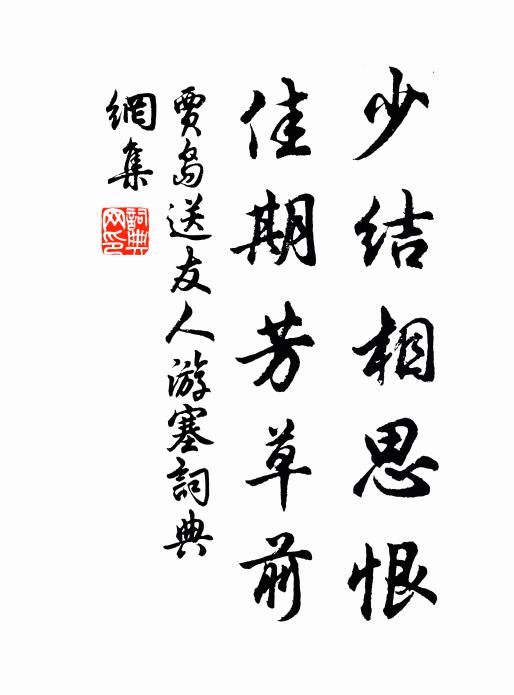 少结相思恨
佳期芳草前
賈島送友人游塞詞典
網集
詞典
网印